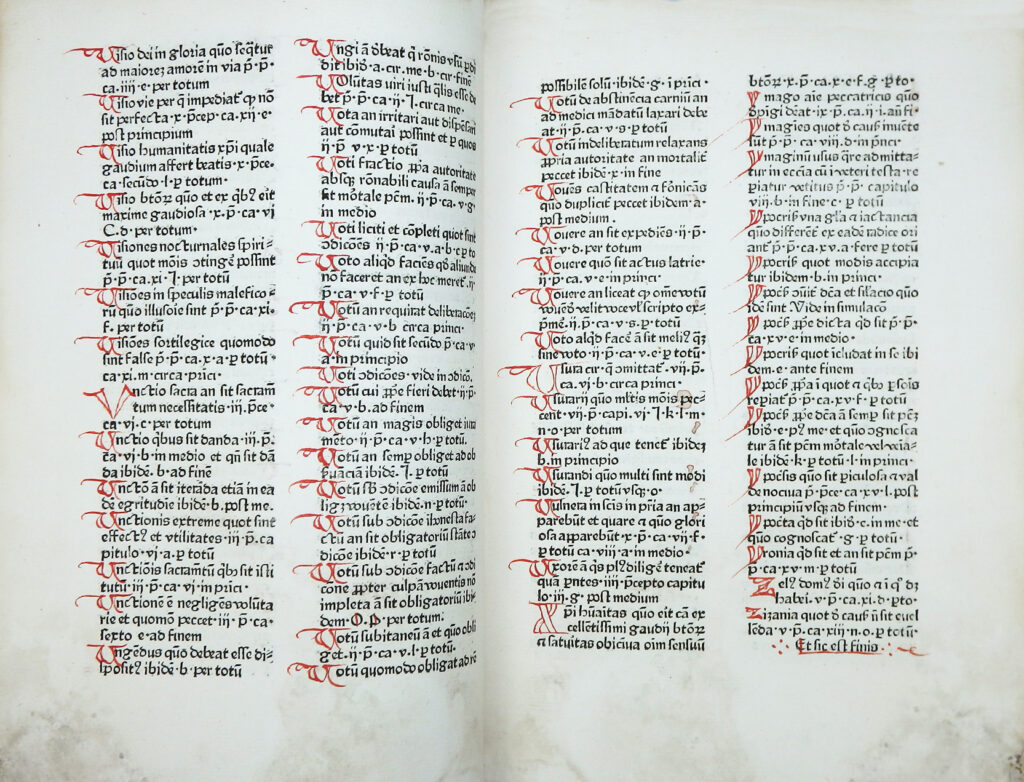 Visio dei in gloria quō seq̄tur
ad maiorez amorem in via p̄·p̄·
ca·iiij·e·per totum
Visio vie per q̄ impediat᷑ qꝫ nō
sit perfecta·x·p̄cep·ca·xij·e·
post principium
Visio humanitatis xp̄i quale
gaudium affert beatis·x·p̄ce·
ca·secūdo·l·ꝑ totum·
Visio btōꝝ quo et ex qb᷒ eit
maxime gaudiosa·x·p̄·ca·vj
C·d·per totum·
Visiones nocturnales spiri⸗
tuū quot mōis ↄtingē possint
p̄·p̄·ca·xi·I·per totū
Visiōes in speculis malefico⸗
rū quo illusoie sint p̄·p̄·ca·xi·
f·per totū
Visiōes sortilegice quomodo
sint false p̄·p̄·ca·x·a·ꝑ totū·
ca·xi·m·circa prīci·
Vnctio sacra an sit sacram̄
tum necessitatis·iij·p̄ce·
ca·vj·c·per totum
Vnctio qbus sit danda·iij·p̄·
ca·vj·b·in medio et qn̄ sit dā
da ibidē·b·ad finē
Vnctō ā sit iterāda etiā in ea
dē egritudie ibidē·b·post me·
Vnctionis extreme quot sint
effect᷒ et vtilitates·iij·p̄·ca
pitulo·vj·a·ꝑ totū
Vnctiōis sacramtū qb᷒ sit isti
tutū·iij·p̄·ca·vj·in prīci·
Vnctionē ē negligēs volūta
rie et quomo peccet·iij·p̄·ca·
sexto·e·ad finem
Vngēdus quo debeat esse di⸗
sposit᷒ ibidē·b·per totū
Vngi ā d̄beat q̄ rōnis vsū ꝑdi
dit ibid̄·a·cir·me·b·cir·finē
Volūtas viri iusti qlis esse de
bet p̄·p̄·ca·ij·I·circa me·
Vota an irritari aut dispēsari
aut cōmutai possint et ꝑ quos
ij·p̄·v·x·ꝑ totū
Voti fractio ꝓpa autoritate
absqꝫ rōnabili causa ā semper
sit mōtale pēm·ij·p̄·ca·v·g·
in medio
Voti liciti et cōpleti quot sint
ↄdicōes ij·p̄·ca·v·a·b·c·ꝑ to
Voto aliqd faciēs qd aliunde
nō faceret an ex hoc meret᷑·ij·
p̄·ca·v·f·ꝑ totū
Votū an requirat deliberacōez
ij·p̄·ca·v·b·circa prīci·
Votū quid sit secūdo p̄·ca·v·
a·in principio
Voti ↄdicōes·vide in ↄdicō·
Votū cui ꝓpe fieri debet·ij·p̄·
ca·v·b·ad finem
Votū an magis obliget iura
mēto·ij·p̄·ca·v·h·ꝑ totū·
Votū an semꝑ obliget ad ob
ẜuaciā ibidē·I·ꝑ totū
Votū sb̄ ↄdicōe emissum ā ob
ligꝫ vouētē ibidē·n·ꝑ totū·
Votū sub ↄdicōe ihonesta fa⸗
ctū an sit obligatoriū stāte ↄ
dicōe ibidē·r·ꝑ totū
Votū sub ↄdicōe factū ↄdi
cōne ꝓpter culpā vouentis nō
impleta ā sit obligatoriū ibi
dem·O·P·per totum·
Votū subitaneū ā et quo obli
get·ij·p̄·ca·v·l·ꝑ totū·
Votū quomodo obligat ad rē
possibilē solū·ibidē·g·i prīci·
Votū de abstinēcia carniū an
ad medici mādatū laxari debe
at·ij·p̄·ca·v·s·ꝑ totū
Votū indeliberatum relaxans
ꝓpria autoritate an mortalit᷑
peccet ibidē·x·in fine
Vouēs castitatem ⁊ fōnicās
quo duplicit᷑ peccet ibidem·a·
post medium·
Vouere an sit expediēs·ij·p̄·
ca·v·d·per totum
Vouere quō sit actus latrie·
ij·p̄·ca·v·e·in princi·
Vouere an liceat qꝫ om̄e votū
vouēs velit voce vl scripto ex⸗
p̄mē·ij·p̄·ca·v·s·ꝑ totū
Voto alqd facē ā sit meli᷒ qꝫ
sine voto·ij·p̄·ca·v·e·ꝑ totū·
Vsura cir·q̄ ↄmittat᷑·vij·p̄·
ca·v·b·circa princi·
Vsurarij quo mltis mōis pec⸗
cent·vij·p̄·capi·vj·I·k·l·m·
n·o·per totum
Vsurari᷒ ad que tenet᷑ ibidez
b·in principio
Vsurandi quo multi sint modi
ibidē·I·ꝑ totū vsqꝫ·o·
Vulnera in scis in pria an ap⸗
parebūt et quare ⁊ quo glori
osa apparebūt·x·p̄·ca·vij·f·
ꝑ totū ca·viij·a·in medio·
Vxorē ā qs pl᷒ diligē teneat᷑
qua pntes·iiij·p̄cepto capitu
lo·iij·g·post medium
Xpi huaītas quo eit cā ex
cellētissimi gaudij btōꝝ
ci satuitas obiciua oim sensuū
btōꝝ·x·p̄·ca·x·e·f·g·ꝑ to·
Ymago aīe peccatricis quo
d̄pigi d̄eat·ix·p̄·ca·ij·i·an fi·
Ymagies quot d̄ cauẜ inuēte
sūt p̄·p̄·ca·viij·d·in pnci·
Ymaginū usus qre admitta⸗
tur in ecc̄ia cū ī veteri testa·re
ꝑiatur vetitus p̄·p̄·capitulo
viij·b·in fine·c·ꝑ totū
Ypocrisis vna gla ⁊ iactancia
quo differēt ex eadē radice ori
ant᷑ p̄·p̄·ca·xv·a·fere ꝑ totū
Ypocrisis quot modis accipia
tur ibidem·b·in princi·
Ypocrisis ↄuit᷑ dc̄a et sil̄acio quō
idē sint·Vide in simulacō
Ypocrisis ꝓpe dicta qd sit p̄·p̄·
ca·xv·e·in medio·
Ypocrisis quot īcludat in se ibi
dem·e·ante finem
Ypocrisis ꝓpa ī quot ⁊ qb᷒ ꝑsois
reꝑiat᷑ p̄·p̄·ca·xv·f·ꝑ totū
Ypocrisis ꝓpe dc̄a ā semꝑ sit pēz
ibid̄·e·p᷒ me·et quo ↄgnosca
tur ā sit pēm mōtale vl venia⸗
le ibidē·k·ꝑ totū·l·in prīci·
Ypocrisis quo sit ꝑiculosa ⁊ val
de nociua p̄·p̄ce·ca·xv·l·post
principiū vsqꝫ ad finem·
Ypocrita qd sit ibid̄·e·in me·et
quo cognoscat᷑·g·ꝑ totū·
Yronia qd sit et an sit pēm p̄·
p̄·ca·xv·m·ꝑ totū
Zel᷒ dom᷒ dī quo ⁊ a qs dꝫ
habri·v·p̄·ca·xi·d·ꝑ to·
Zizania quot d̄ cauẜ n̄ sit euel
lēda·v·p̄·ca·xiij·n·o·ꝑ totū·
Et sic est finis·